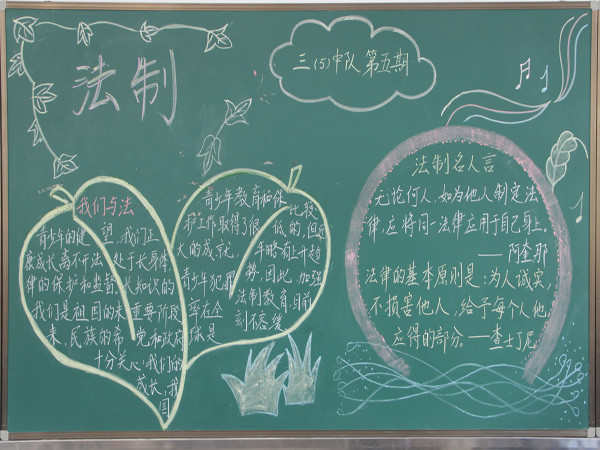 法制
三(5)中队 第五期
我们与法
青少年的健 望,我们正
康成长离不开法 处于长身体
律的保护和监督 长知识的
我们是祖国的未 重要阶段
来,民族的希 党和政府
十分关心我们的
成长,我
国
青少年教育和保
护工作取得了很
大的成就,
青少年犯罪
率在全
球是
比较
低的,但近
年略有上升趋
势,因此,加强
法制教育目前
刻不容缓
法制名人言
无论何人,如为他人制定法
律,应将同一法律应用于自己身上。
——阿奎那
法律的基本原则是:为人诚实,
不损害他人,给予每个人他
应得的部分。——查士丁尼